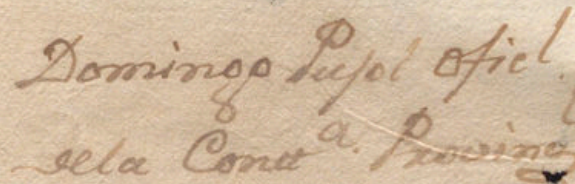 Domingo Pujol ofiel
dela Contª. Provinc